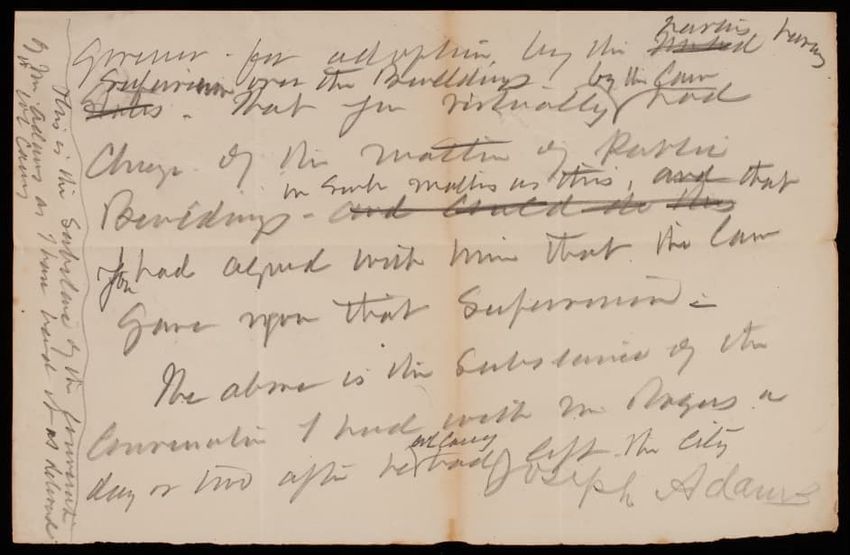 Governor - for adoption, by the parties having
Supervision over the Buildings, by the Law
States - That you virtually had
Charge of the matter of Public
in such matters as this, and that
Buildings - and could do this
You had agreed with him that the law
gave you that Supervision -
The above is the Substance of the
Conversation I had with Mr Rogers a
day or two after he had left the City
Col Casey
Joseph Adams
This is the Substance of the
of Mr Adams as I have heard it as
to Col Casey